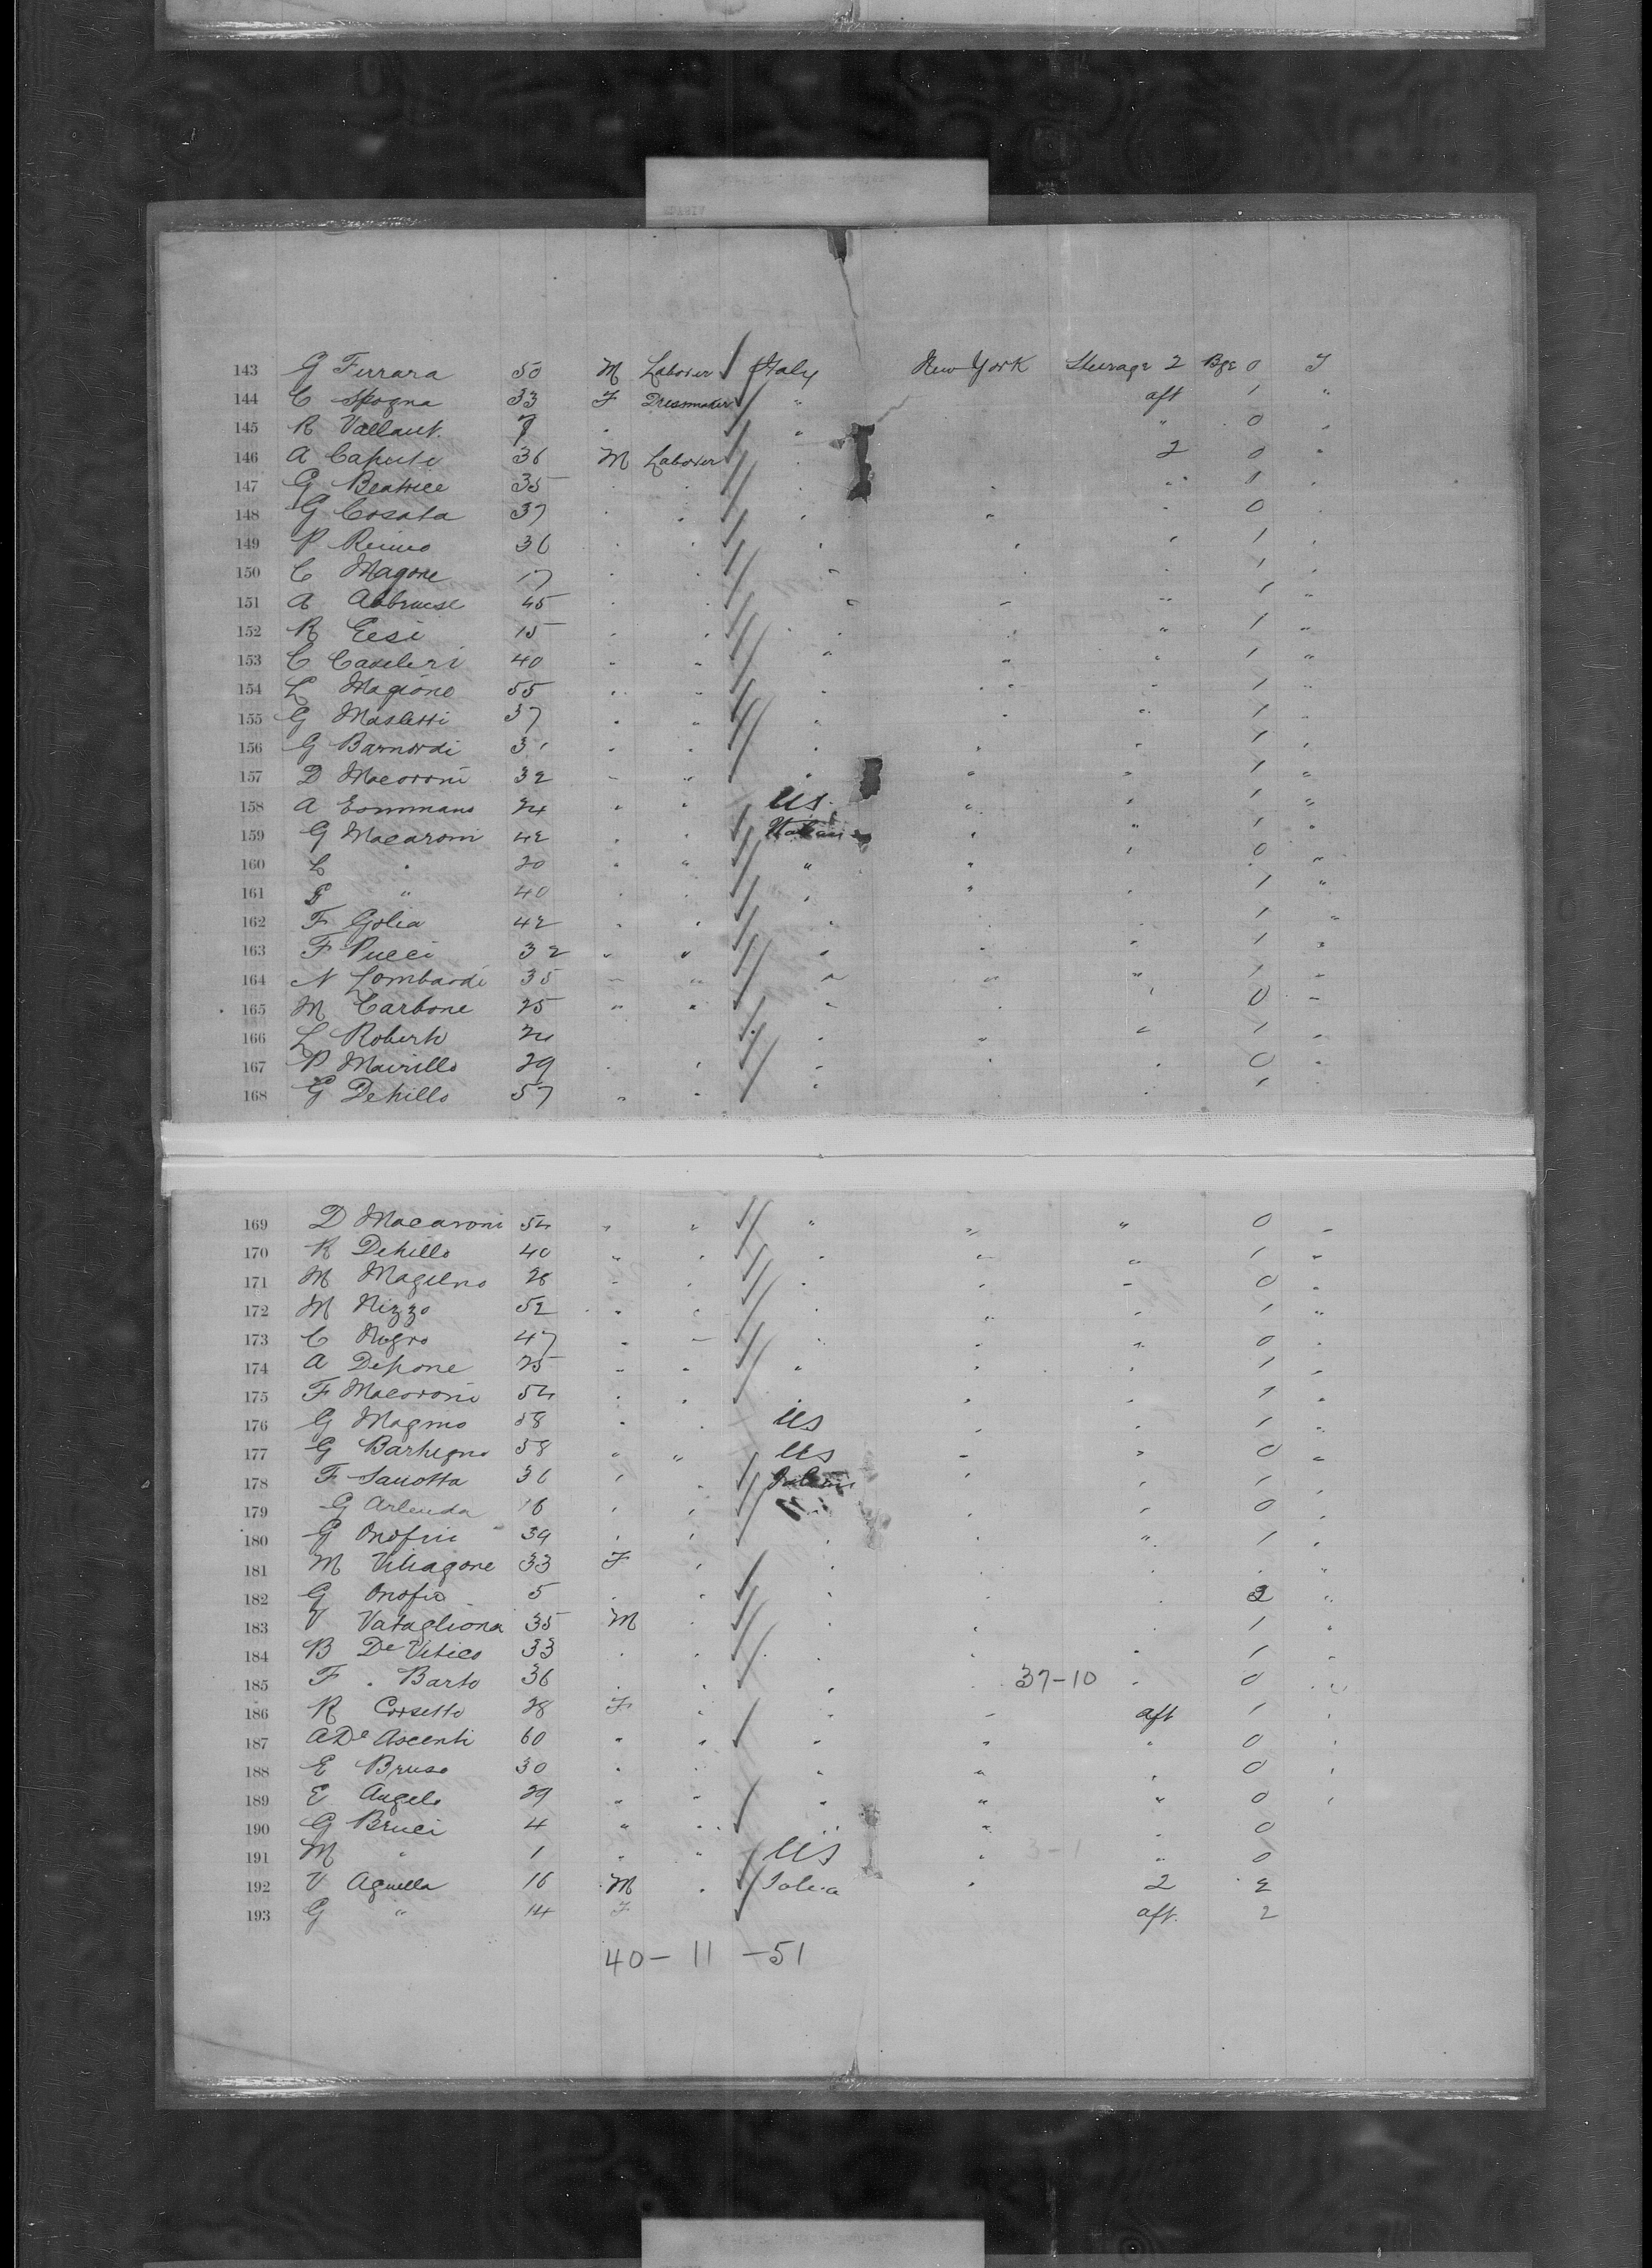 143 G Ferrara 50 M Laborer Italy New York Steerage 2 Bge 0 T
144 C Spogna 33 F Dressmaker " aft 1 "
145 R Vallaut. 7 " " " 0 "
146 A Caputi 36 M Laborer " 2 0 "
147 G Beatrice 35 " " " " " 1 "
148 G Cosata 37 " " " " " 0 "
149 P 36 " " " " " 1 "
150 C Magone 17 " " " " " 1 "
151 A Abbruese 45 " " " " " 1 "
152 R 15 " " " " " 1 "
153 C 40 " " " " " 1 "
154 L Magione 55 " " " " " 1 "
155 G Masletti 37 " " " " " 1 "
156 G Barnordi " " " " " 1 "
157 D Macoroni 32 " " " " " 1 "
158 A 24 " " US. " " 1 "
159 G Macaroni 42 " " Italian " " 1 "
160 L " 20 " " " " " 0 "
161 " 40 " " " " " 1 "
162 F Golia 42 " " " " " 1 "
163 F Pucci 32 " " " " " 1 "
164 N Lombardi 35 " " " " " 1 "
165 M Carbone 25 " " " " " 0 "
166 L Roberto " " " " 1 "
167 P Mairillo 29 " " " " " 0 "
168 G Dehillo 57 " " " " 1 "
169 D Macaroni 54 " " " " " 0 "
170 R Dehillo 40 " " " " " 1 "
171 M Magelno 28 " " " " " 0 "
172 M Nizzo 52 " " " " " 1 "
173 C Nogro 47 " " " " " 0 "
174 A Depone 25 " " " " " 1 "
175 F Macoroni 54 " " " " " 1 "
176 G Magno 38 " " US " 1 "
177 G Barhegno 58 " " US " " 0 "
178 F Sanotta 36 " " " " 1 "
179 G Arlenda 16 " " " " 0 "
180 G Onofrii 39 " " " " " 1 "
181 M Vitiagone 33 F " " " " "
182 G Onofio 5 " " " " " 2 "
183 V Vatagliona 35 M " " " " 1 "
184 B De Vitico 33 " " " " " 1 "
185 F. Barto 36 " " " " 37-10 " 0 "
186 R Corsetto 28 F " " " aft 1 "
187 A De Ascenti 60 " " " " " 0 "
188 E Bruso 30 " " " " " 0 "
189 E Angelo 29 " " " " " 0 "
190 G Bruci 4 " " " " " 0
191 M " 1 " " US " " 0
192 V Aguella 16 M " " 2 2
193 G " 14 F aft. 2
40 - 11 - 51